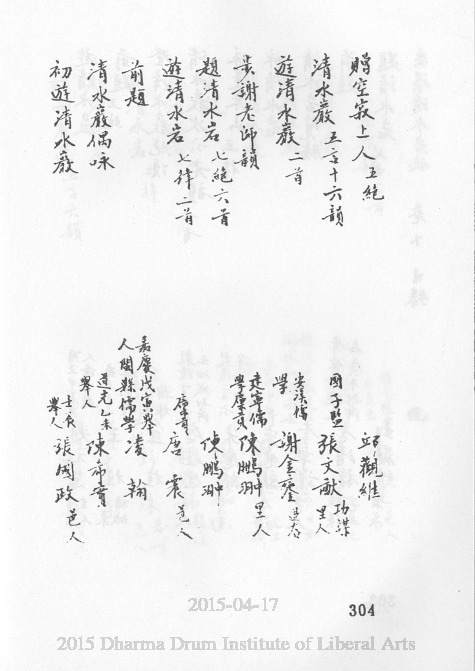 贈空寂上人五絶
邱觀維
清水巖五言十六韻
國子監張文猷功課里人
遊清水巖二首
安溪儒學謝金鑾
步謝老師韻
建寧儒學廩貢陳鵬翀里人
題清水岩七絶六首
陳鵬翀
遊清水岩七律二首
唐震邑人
前題
嘉慶戊寅舉人閩縣儒學凌翰
清水巖偶咏
道光乙未舉人陳希實
初遊清水巖
舉人張國政邑人
304
2015-04-17
2015 Dharma Drum Institute of Liberal Arts